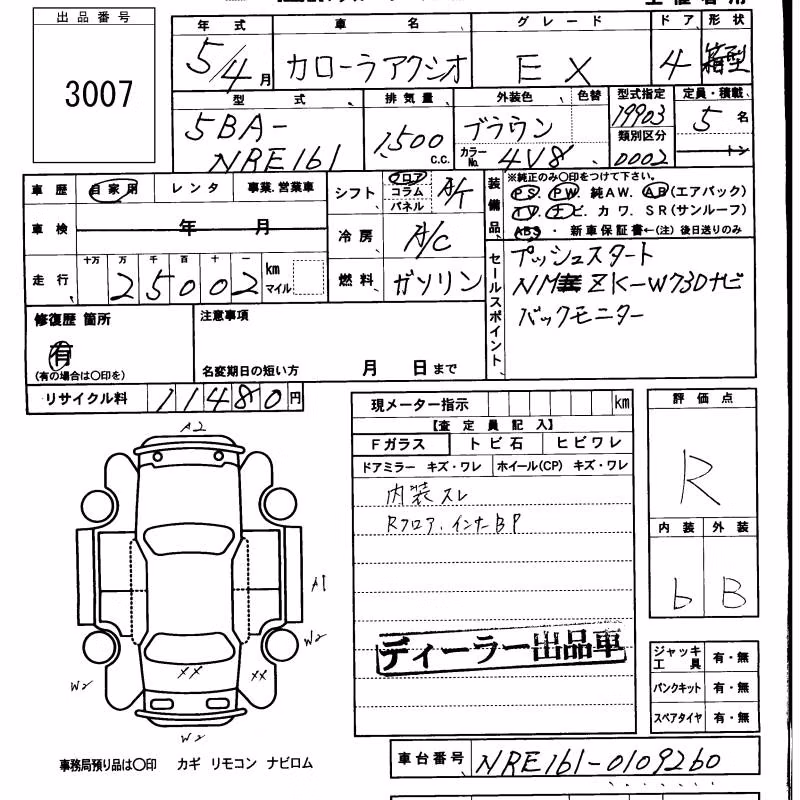 出品番号
3007
年式 車名 グレード ドア 形状
5/4月 カローラアクシオ EX 4 箱型
型式 排気量 外装色 色替 型式指定 定員・積載
5BA-NRE161 1,500 c.c. ブラウン 19903 5名
カラーNo. 4V8 類別区分 0002 トン
車歴 自家用 レンタ 事業.営業車
車検 年 月
走行 十万 万 千 百 十 一 km マイル
25002
シフト フロア コラム パネル
冷房 A/C
燃料 ガソリン
装備品 ※純正のみ〇印をつけて下さい。
PS. PW. 純AW. AB(エアバック)
TV. ナビ. カワ. SR(サンルーフ)
ABS ・ 新車保証書←(注)後日送りのみ
セールスポイント
プッシュスタート
ZK-W73Dナビ
バックモニター
修復歴 箇所
有
(有の場合は〇印を)
注意事項
名変期日の短い方 月 日まで
リサイクル料 11480円
現メーター指示 km
【査定員記入】
Fガラス トビ石 ヒビワレ
ドアミラー キズ・ワレ ホイール(CP) キズ・ワレ
内装スレ
Rフロア.インナBP
ディーラー出品車
評価点
R
内装 外装
b B
A2
A1
W2
W2
XX XX
W2
ジャッキ工具 有・無
パンクキット 有・無
スペアタイヤ 有・無
事務局預り品は〇印 カギ リモコン ナビロム
車台番号 NRE161-0109260